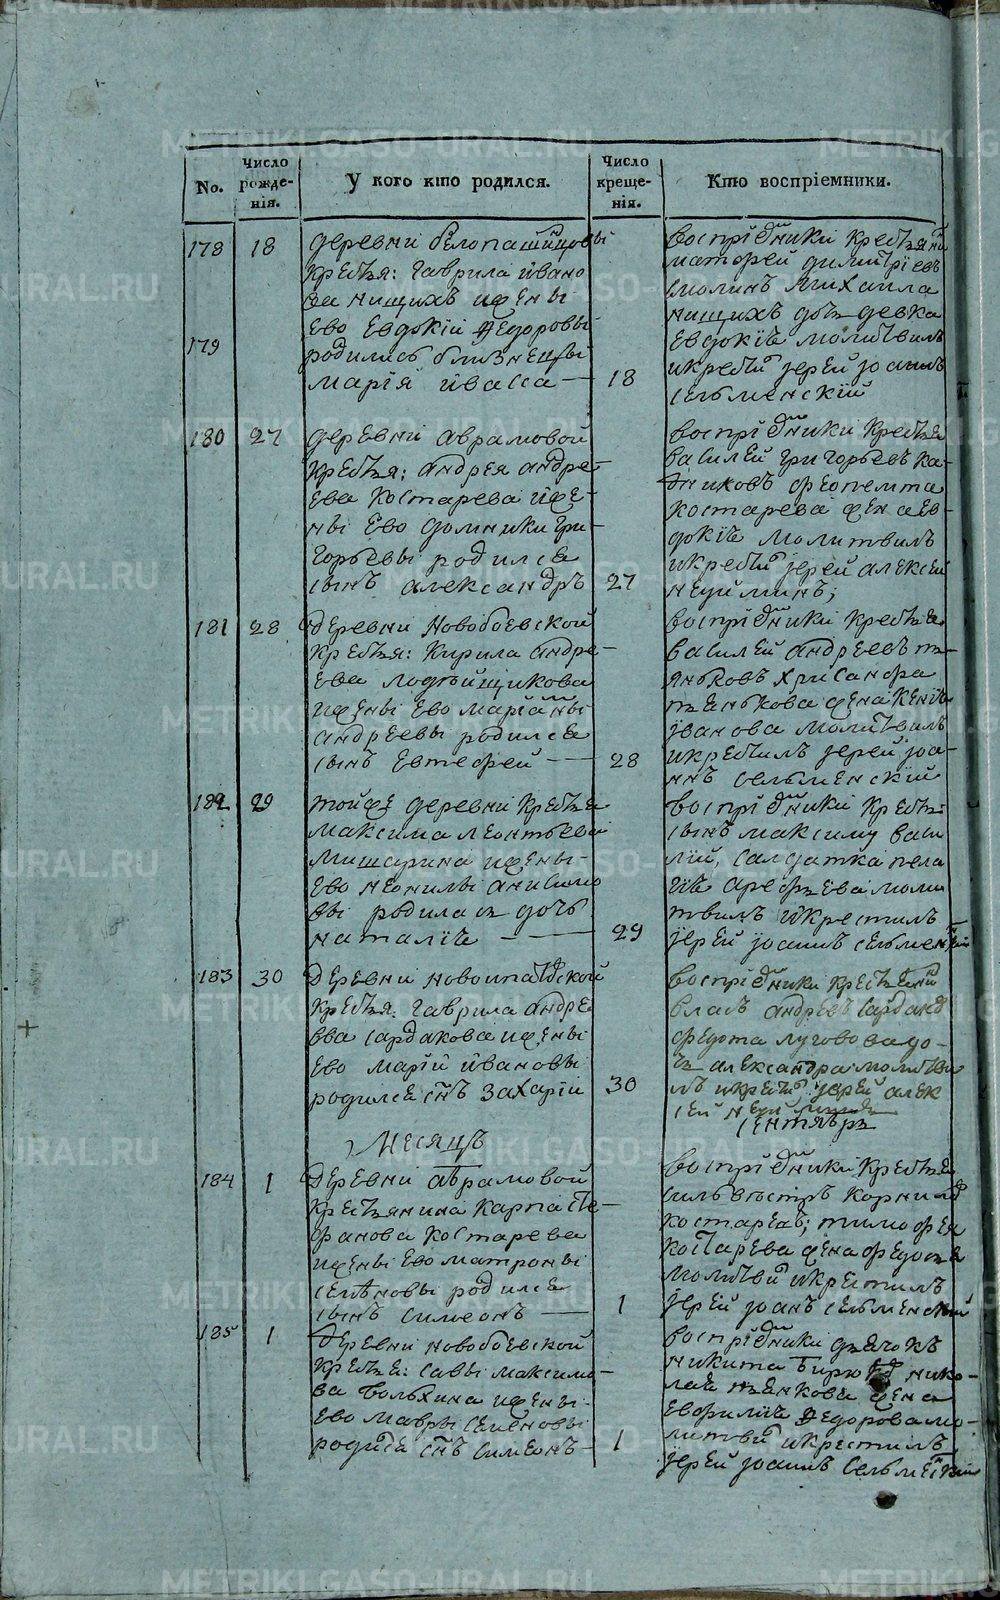 No.
Число рожде-нія.
У кого кто родился.
Число креще-нія.
Кто воспріемники.
178 18
179
деревни
крестья: гаврила ивано
ва нищихъ ижены
Ево Евдокіи Федоровы
родились близнецы
марія иваса 18
воспріемники крестьянинъ
матфей димитріевъ
смолинъ михаила
нищихъ дочь девка
Евдокіѣ молитвилъ
икрестилъ іерей іоаннъ
сельменскій
180 27
деревни аврамовой
крестья: андрея андре-
ева костарева иже-
ны Ево домники гри-
горьевы родился
сынъ александръ 27
воспріемники крестья
василей григорьевъ ка-
костарева жена ев-
докіѣ молитвилъ
икрестилъ іерей алексей
неуйминъ;
181 28
деревни Новобоевской
крестья: кирила андре-
ева
ижены Ево
андреевы родился
сынъ Евтефей 28
воспріемники крестья
василей андреевъ пь-
янковъ хрисанфа
пьянкова жена
іванова молитвилъ
икрестилъ іерей іоа-
ннъ сельменскій
182 29
тойже деревни крестья
максима леонтьева
мишарина ижены
Ево неонилы анисимо
вы родилась дочь
наталіѣ 29
воспріемники крестья:
сынъ максиму васи
лій, салдатка пела
гіѣ арефьева моли
твилъ икрестилъ
іерей іоаннъ сельменскій
183 30
деревни
крестья: гаврила андре
ева сардакова ижены
Ево маріи ивановы
родился сынъ захарій 30
воспріемники крестьяни
власъ андреевъ сардаковъ
федота луговова до-
чь александра молитви
лъ икрести іерей алек
сей неуйминъ
Месяцъ сентябрь
184 1
деревни аврамовой
крестьянина карпа сте-
фанова костарева
ижены Ево матроны
семеновы родился
сынъ симеонъ 1
воспріемники крестья
сильвестръ корниловъ
костаревъ; тимофея
костарева жена федосья
молитви икрестилъ
іерей іоанъ сельменскій
185 1
деревни новобоевской
крестья: савы максимо-
ва вольхина ижены
Ево мавры семеновы
родился сынъ симеонъ 1
воспріемники дьячокъ
никита бирюковъ нико-
лая пьянкова жена
Евфиміѣ Федорова мо-
литви икрестилъ
іерей іоаннъ сельменскій
METRIKI.GASO-URAL.RU